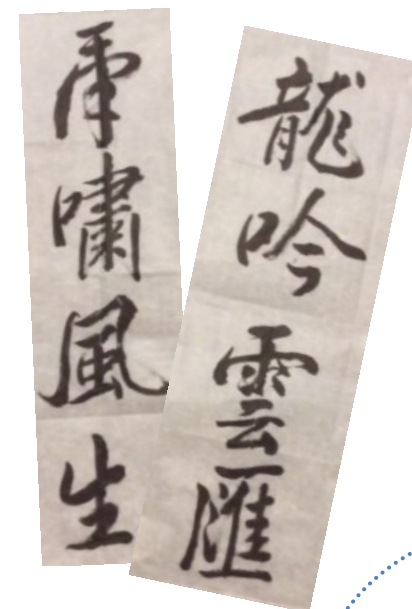 龍吟雲匯
虎嘯風生